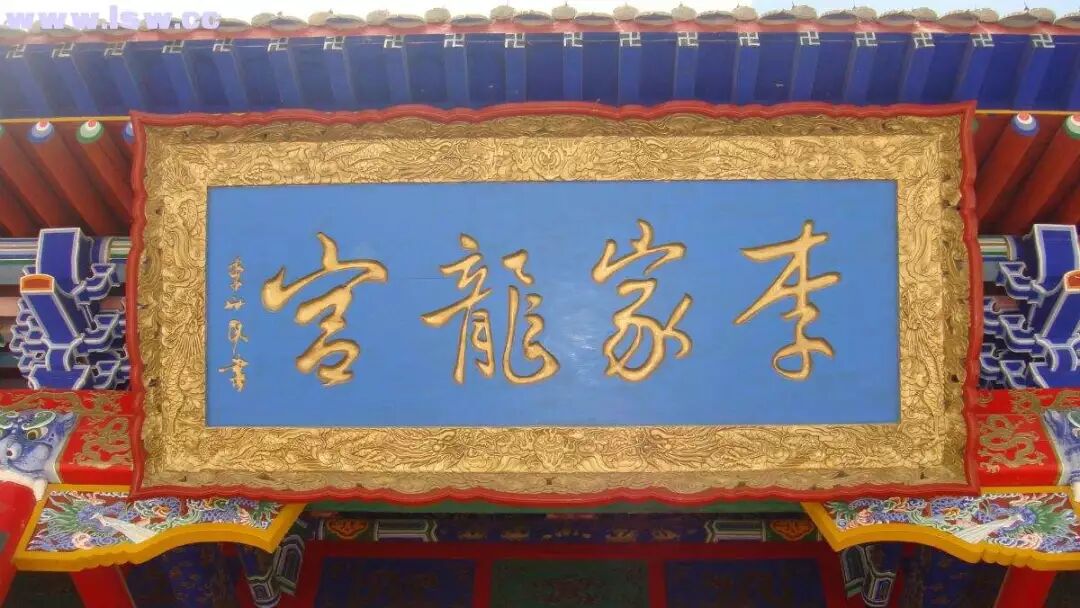 www.lsw.cc
李家龍宫
李世民書